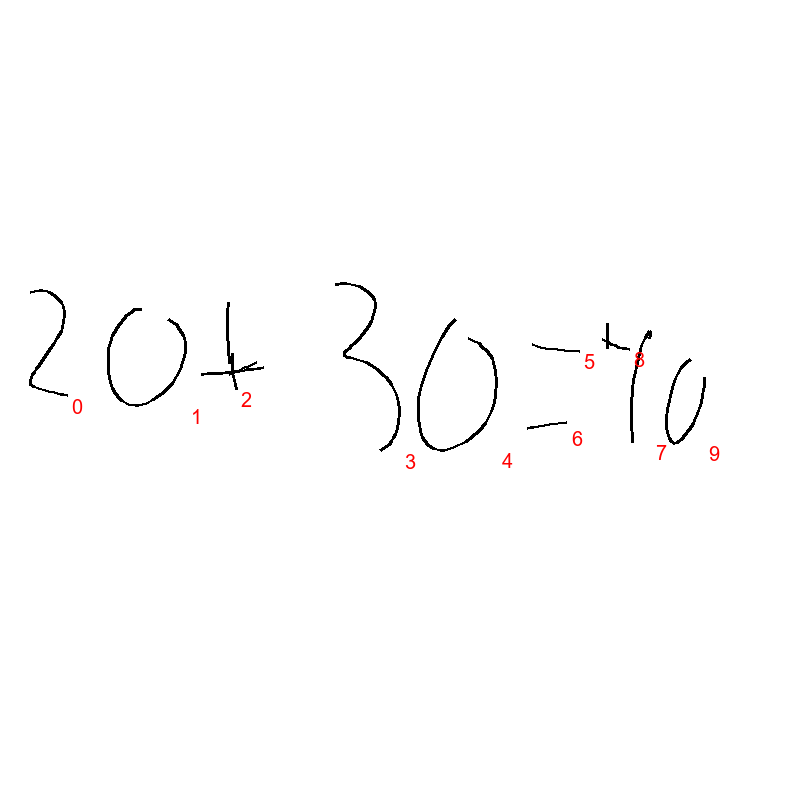 20+ 30 = 40
0 1 2 3 4 5 6 8 7 9